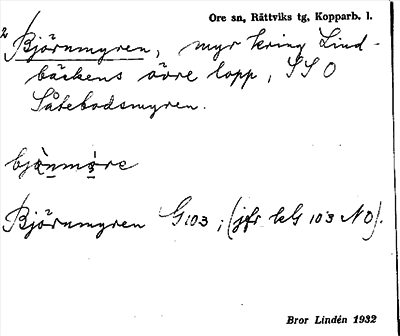 Ore sn, Rättviks tg, Kopparb. l.
2 Björnmyren, myr kring Lind-
bäckens övre lopp, SSO
Såtebodsmyren.
Björnmyren G 103; (jfr kG 103 NO).
Bror Lindén 1932